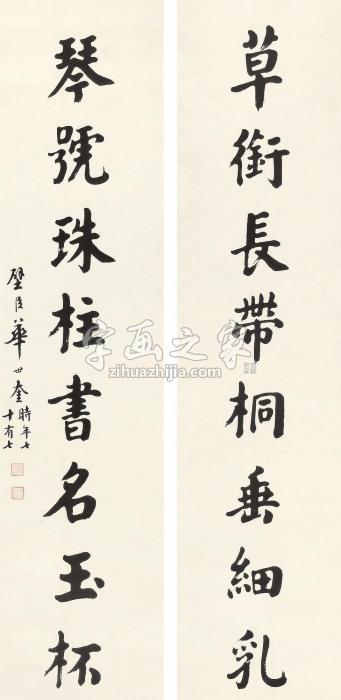 草銜長帶桐垂細乳
琴號珠柱書名玉杯
璧臣華世奎時年七
十有七
字画之家
zihuazhijia.com